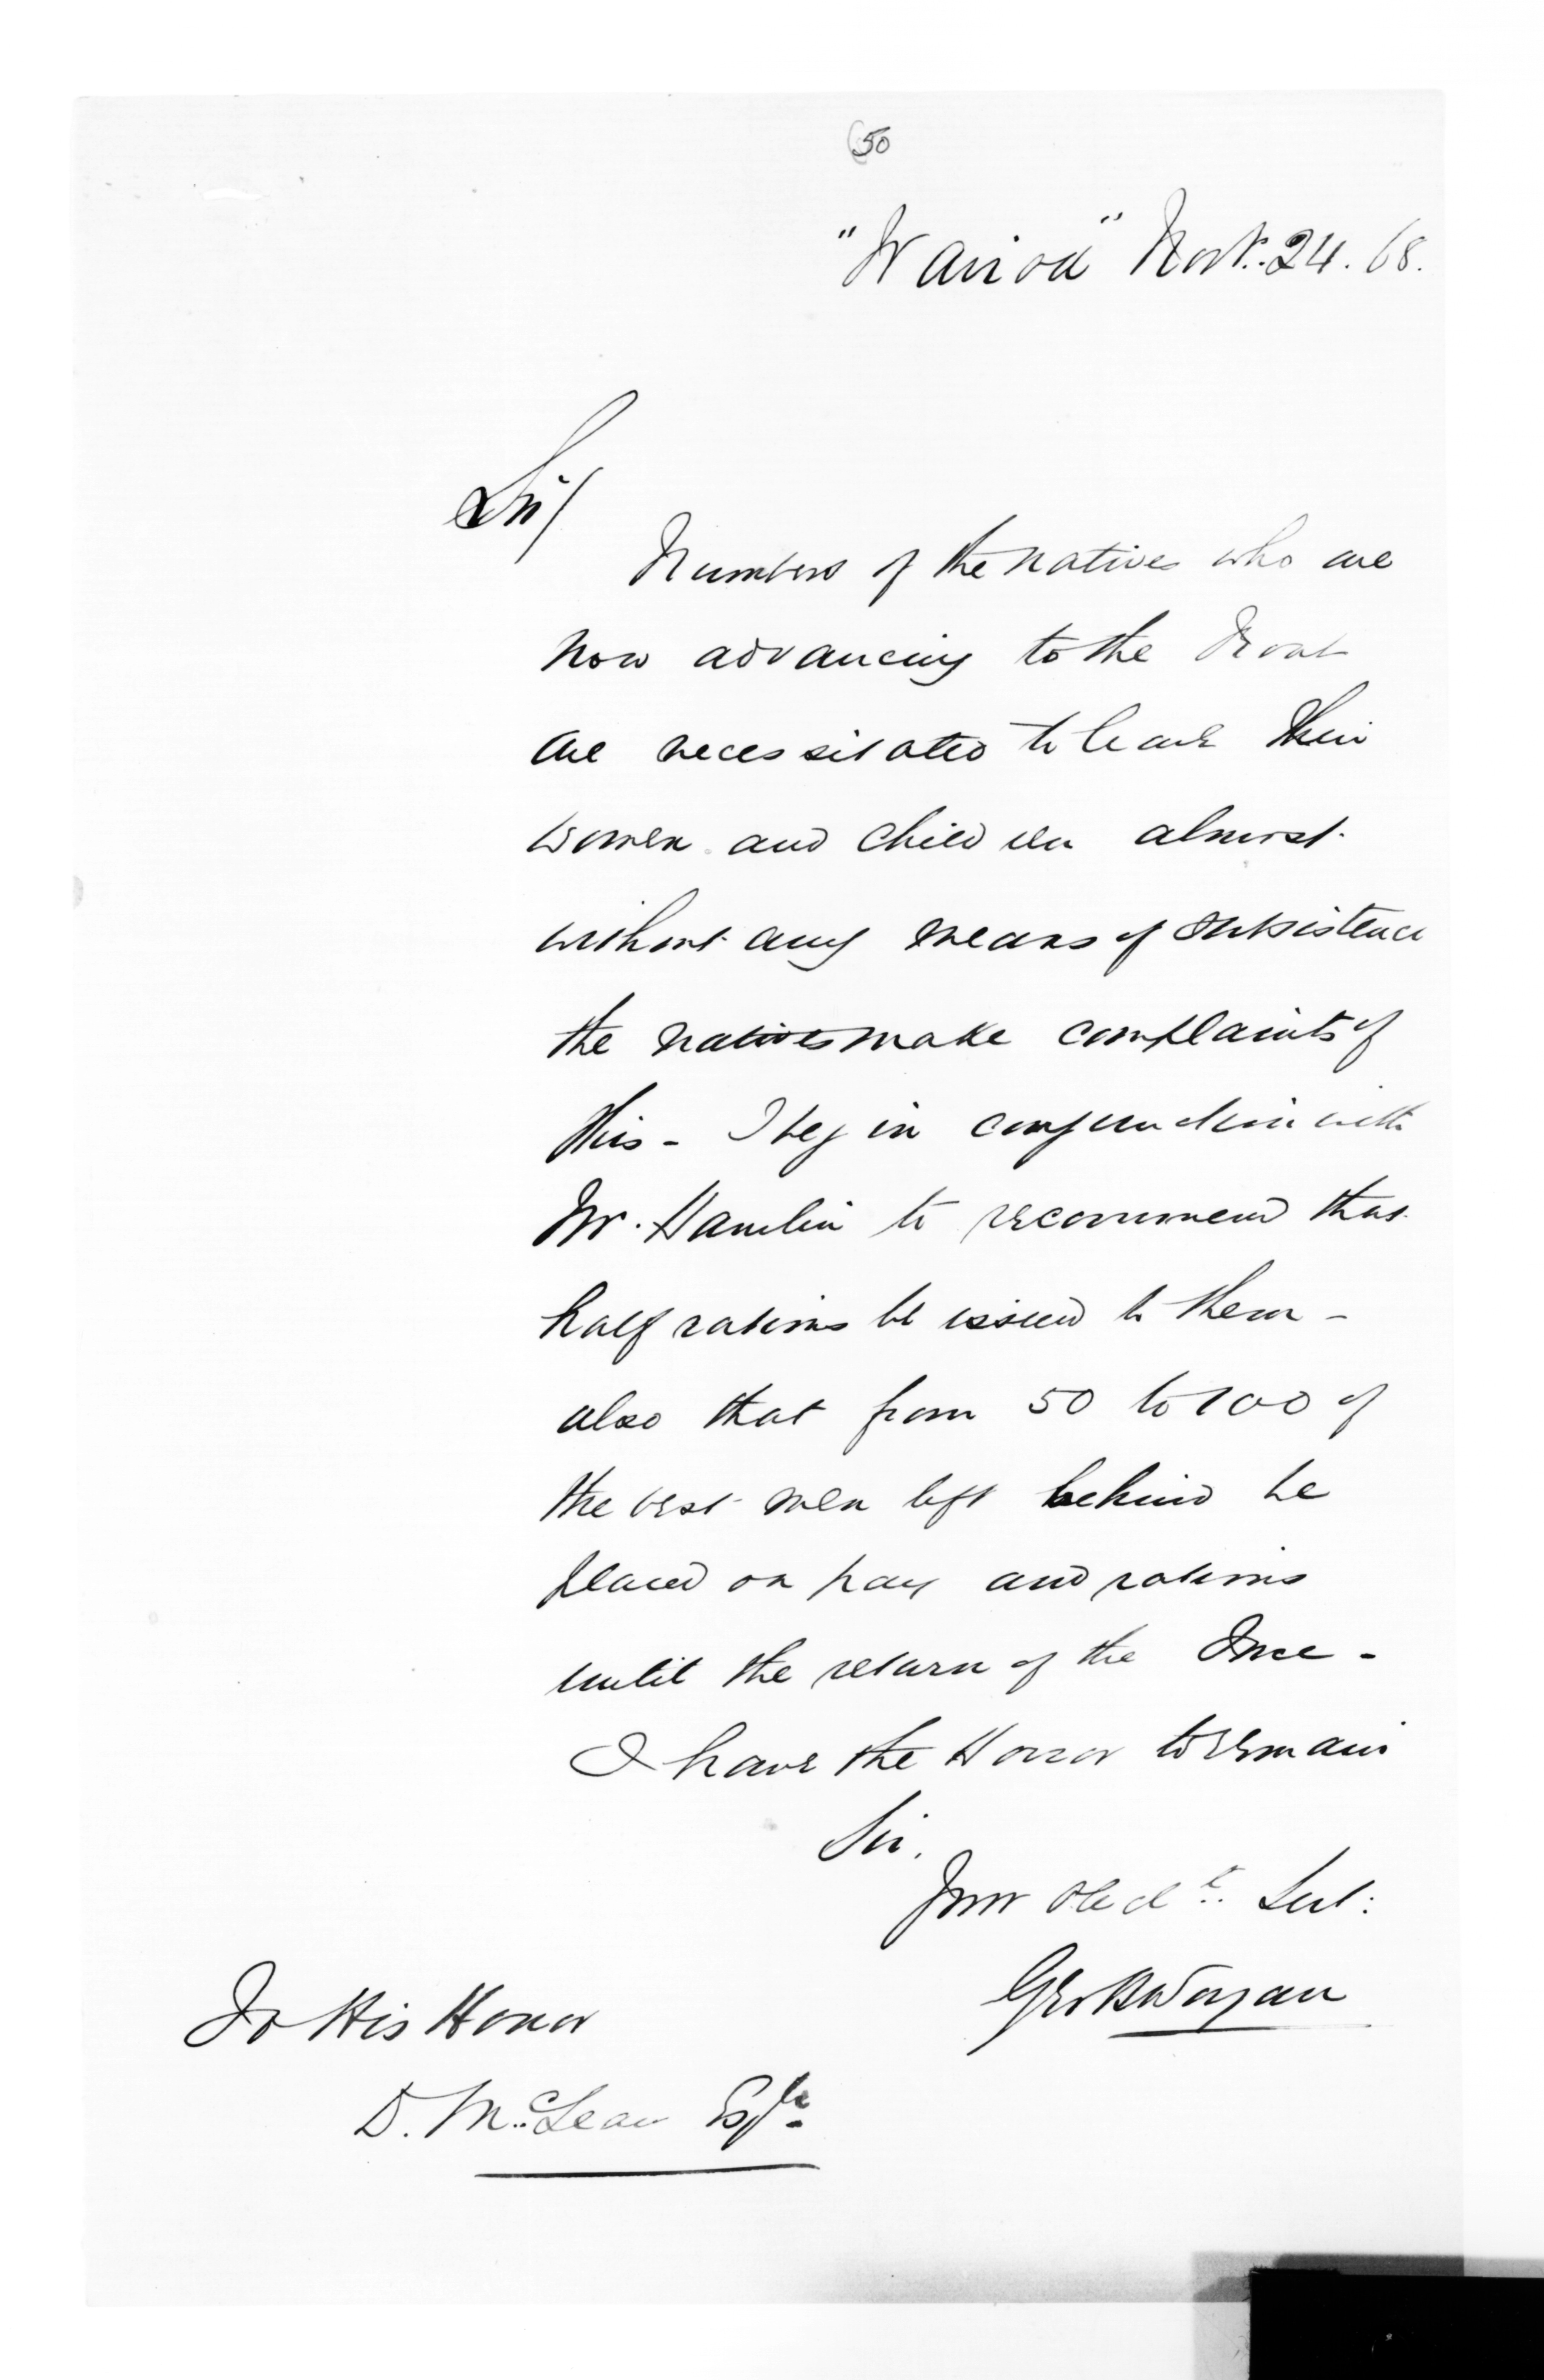 50
"Wairoa" Novr. 24. 68.
Sir/
Numbers of the natives who are
now advancing to the Front
are necessitated to leave their
women and children almost
without any means of subsistence
the natives make complaints of
this - I beg in conjunction with
Mr. Hamlin to recommend that
half rations be issued to them -
also that from 50 to 100 of
the best men left behind be
placed on pay and rations
until the return of the Force -
I have the Honor to remain
Sir.
Your Obedt. Sevt:
Geo B Worgan
To His Honor
D. McLean Esqre.